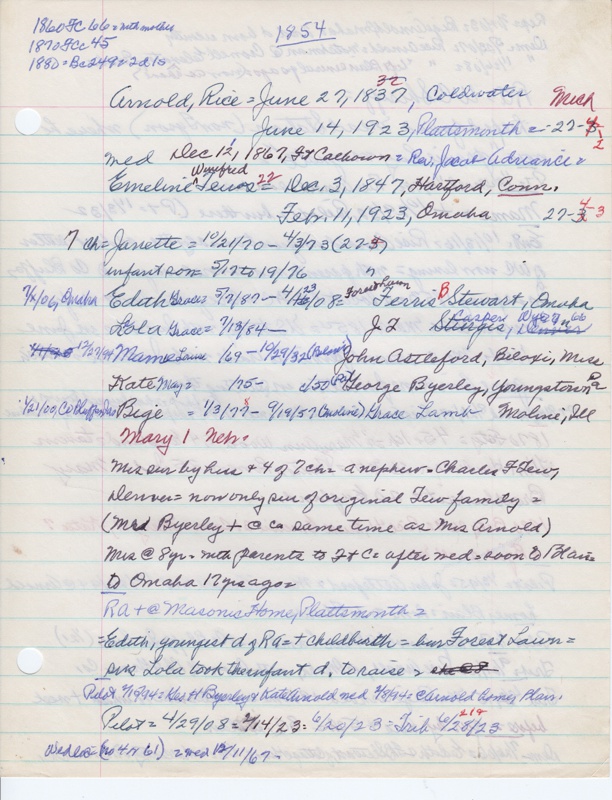 1860 FC 66 = with mother
1870 FCc 45
1880 = Bc 249 = 2d 10
1854
Arnold, Rice = June 27, 1837, Coldwater Mich
32
June 14, 1923, Plattsmouth = -27-
med Dec 12, 1867, Ft Calhoun = Rev. Jacob Adriance =
Winifred
Emeline Tew = Dec. 3, 1847, Hartford, Conn.
22
Feb. 11, 1923, Omaha 27-
7 ch = Janette = 10/21/70 - 4/3/73 (27-3)
infant son = 5/17 to 19/76 "
7/2/06, Omaha Edith Grace = 5/7/87 - 4/23/08 = Forest Lawn Ferris B Stewart, Omaha
Lola Grace = 7/13/84 - J L Sturgis,
12/27/94 Mamie Laura /69 - 10/29/32 (Biloxi) John Astleford, Biloxi, Miss
Kate May = /75 - George Byerley, Youngstown Pa
1/21/00, Co Bluffs Bige = 1/3/77 - 9/19/57 (Moline) Grace Lamb Moline, Ill
Mary 1 Neb.
Mrs sur by hus + 4 of 7 ch = a nephew = Charles F Tew,
Denver = now only sur of original Tew family =
(Mrs Byerley + c c same time as Mrs Arnold)
Mrs @ 8yr = with parents to Ft Cc after med = soon to Blair =
to Omaha 17 yrs ago =
RA + @ Masonic Home, Plattsmouth =
= Edith, youngest d of RA = + childbirth = bur Forest Lawn =
Lola took the infant d. to raise =
Pilot 7/19/94 = Geo H Byerley & Kate Arnold med = Arnold home, Blair.
Pilot = 4/29/08 = 2/14/23 = 6/20/23 = Trib 6/28/23
2/14
(no 4 & 61) = med 12/11/67 -